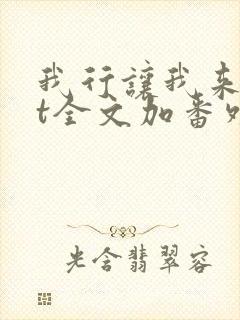 我行讓我来
t全文加番
光含翡翠容